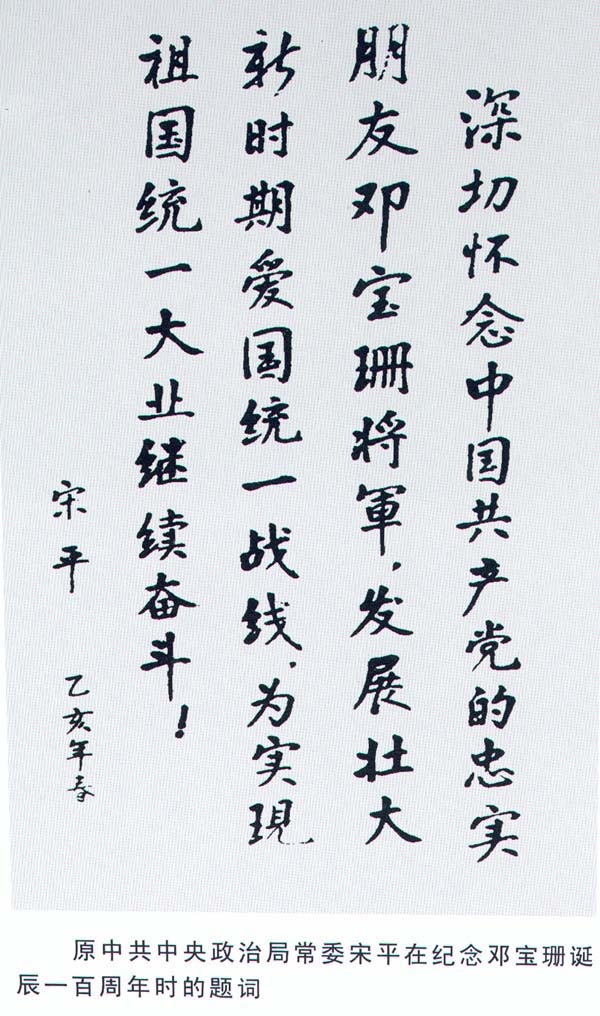 深切怀念中国共产党的忠实
朋友邓宝珊将軍，发展壮大
新时期爱国统一战线，为实現
祖国统一大业继续奋斗！
宋平
乙亥年春
原中共中央政治局常委宋平在纪念邓宝珊诞
辰一百周年时的题词